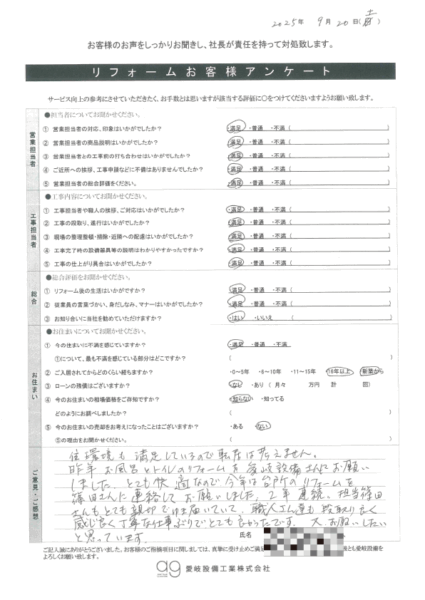 2025年 9月 20日(土)
お客様のお声をしっかりお聞きし、社長が責任を持って対処致します。
リフォームお客様アンケート
サービス向上の参考にさせていただきたく、お手数とは思いますが該当する評価に○をつけてくださいますようお願い致します。
営業担当者
●担当者についてお聞かせください。
① 営業担当者の対応、印象はいかがでしたか? ・満足 ・普通 ・不満 (
② 営業担当者の商品説明はいかがでしたか? ・満足 ・普通 ・不満 (
③ 営業担当者との工事前の打ち合わせはいかがでしたか? ・満足 ・普通 ・不満 (
④ ご近所への挨拶、工事申請などに不備はありませんでしたか? ・満足 ・普通 ・不満 (
⑤ 営業担当者の総合評価をください。 ・満足 ・普通 ・不満 (
工事担当者
●工事内容についてお聞かせください。
① 工事担当者や職人の挨拶、ご対応はいかがでしたか? ・満足 ・普通 ・不満 (
② 工事の段取り、進行はいかがでしたか? ・満足 ・普通 ・不満 (
③ 現場の整理整頓・掃除・近隣への配慮はいかがでしたか? ・満足 ・普通 ・不満 (
④ 工事完了時の設備器具等の説明はわかりやすかったですか? ・満足 ・普通 ・不満 (
⑤ 工事の仕上がり具合はいかがでしたか? ・満足 ・普通 ・不満 (
総合
●総合評価をお聞かせください。
① リフォーム後の生活はいかがですか? ・満足 ・普通 ・不満 (
② 従業員の言葉づかい、身だしなみ、マナーはいかがでしたか? ・満足 ・普通 ・不満 (
③ お知り合いに当社を勧めていただけますか? ・はい ・いいえ (
お住まい
●お住まいについてお聞かせください。
① 今の住まいに不満を感じていますか? ・満足 ・普通 ・不満
①について、最も不満を感じている部分はどこですか? (
② ご入居されてからどのくらい経ちますか? ・0～5年 ・6～10年 ・11～15年 ・16年以上 ・新築から
③ ローンの残債はございますか? ・ない ・あり ( 月々 万円 計 回)
④ 今のお住まいの相場価格をご存知ですか? ・知らない ・知ってる
どのようにお調べしましたか? (
⑤ 今のお住まいの売却をお考えになったことはございますか? ・ある ・ない
⑤の理由をお聞かせください。 (
ご意見・ご感想
住環境も満足しているので転居は考えません。
昨年お風呂とトイレのリフォームを愛岐設備さんにお願い
しました。とても快適なので今年は台所のリフォームを
篠田さんに連絡してお願いしました。2年連続、担当篠田
さんもとても親切で 職人さん達も段取り良く
感じ良く丁寧な仕事ぶりでとても良かったです。又お願いしたい
と思っています。
氏名
ご記入誠にありがとうございました。お客様のご指摘項目に関しましては、真摯に受け止めご満足 後とも愛岐設備を
よろしくお願い致します。
ag 愛岐設備工業株式会社